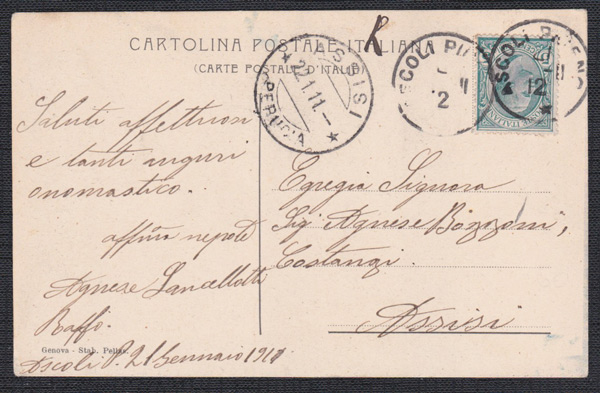 CARTOLINA POSTALE ITALIANA
(CARTE POSTALE D'ITALIE)
R
ASSISI
22.1.11.
PERUGIA
ASCOLI PI
2
ASCOLI PICENO
12
POSTE ITALIANE
Saluti affettuosi
e tanti auguri
onomastico.
affma nepote
Agnese Lancellotti
Baffo.
Ascoli P. 21 Gennaio 1911
Egregia Signora
Sig Agnese Bozzoni,
Costanzi.
Assisi
Genova - Stab.